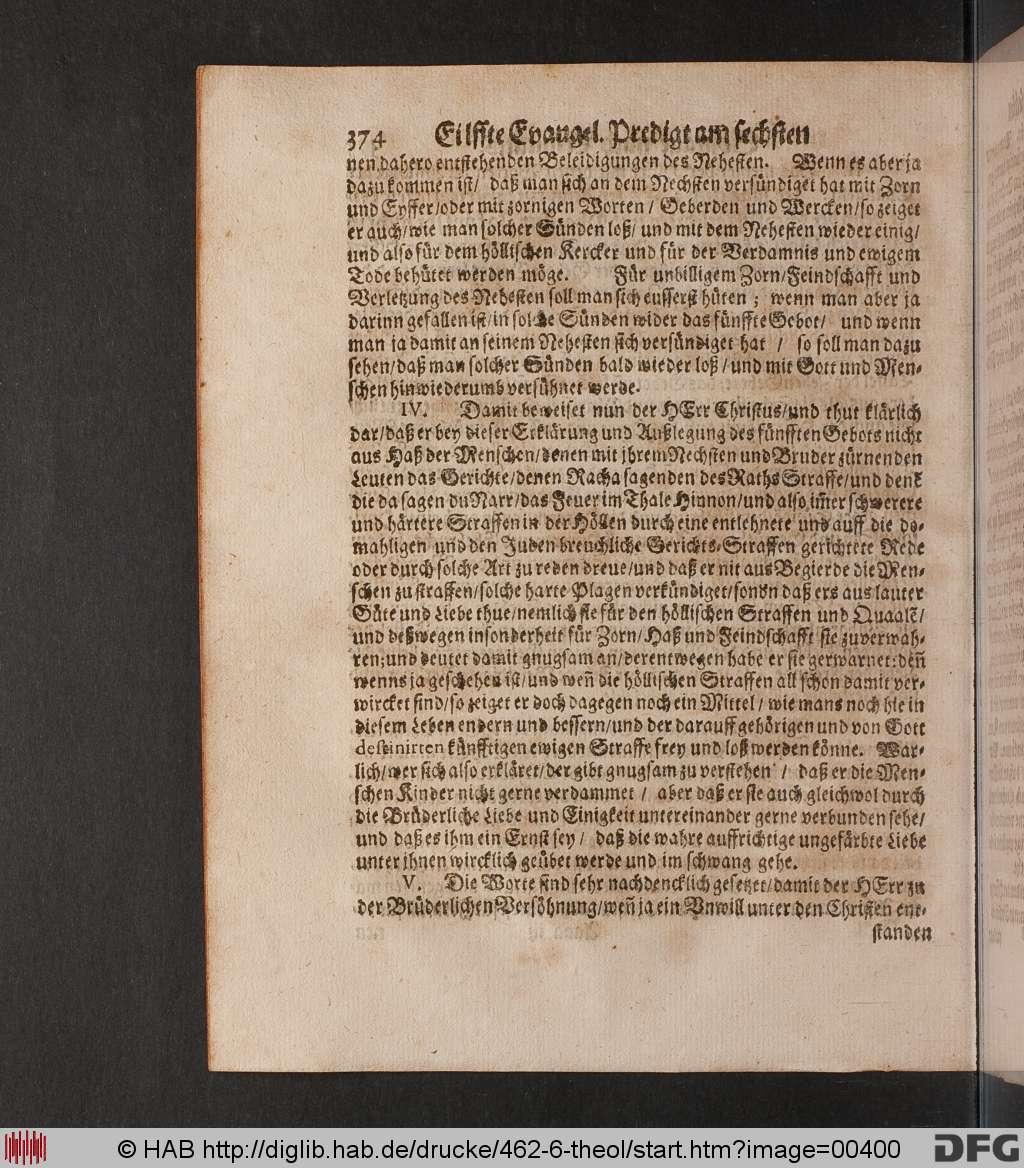 374 Eilffte Evangel. Predigt am sechsten
nen dahero entstehenden Beleidigungen des Nehesten. Wenn es aber ja
dazu kommen ist/ daß man sich an dem Nechsten versündiget hat mit Zorn
und Eyffer/oder mit zornigen Worten / Geberden und Wercken/so zeiget
er auch/wie man solcher Sünden loß/ und mit dem Nehesten wieder einig/
und also für dem höllischen Kercker und für der Verdamnis und ewigem
Tode behütet werden möge. Für unbilligem Zorn/Feindschafft und
Verletzung des Nehesten soll man sich eusserst hüten ; wenn man aber ja
darinn gefallen ist/in solche Sünden wider das fünffte Gebot/ und wenn
man ja damit an seinem Nehesten sich versündiget hat / so soll man dazu
sehen/daß man solcher Sünden bald wieder loß/und mit Gott und Men-
schen hinwiederumb versühnet werde.
IV. Damit beweiset nun der HErr Christus/und thut klärlich
dar/daß er bey dieser Erklärung und Außlegung des fünfften Gebots nicht
aus Haß der Menschen/denen mit jhrem Nechsten und Bruder zürnenden
Leuten das Gerichte/denen Racha sagenden des Raths Straffe/und denē
die da sagen du Narr/das Feuer im Thale Hinnon/und also im̃er schwerere
und härtere Straffen in der Höllen durch eine entlehnete und auff die da-
mahligen und den Juden breuchliche Gerichts-Straffen gerichtete Rede
oder durch solche Art zu reden dreue/und daß er nit aus Begierde die Men-
schen zu straffen/solche harte Plagen verkündiget/sondn daß ers aus lauter
Güte und Liebe thue/nemlich sie für den höllischen Straffen und Quaalē/
und deßwegen insonderheit für Zorn/Haß und Feindschafft sie zuverwah-
ren:und deutet damit gnugsam an/derentwegen habe er sie gerwarnet:den̄
wenns ja geschehen ist/und wen̄ die höllischen Straffen all schon damit ver-
wircket sind/so zeiget er doch dagegen noch ein Mittel / wie mans noch hie in
diesem Leben endern und bessern/und der darauff gehörigen und von Gott
destinirten künfftigen ewigen Straffe frey und loß werden könne. War-
lich/wer sich also erkläret/der gibt gnugsam zu verstehen / daß er die Men-
schen Kinder nicht gerne verdammet / aber daß er sie auch gleichwol durch
die Brüderliche Liebe und Einigkeit untereinander gerne verbunden sehe/
und daß es ihm ein Ernst sey / daß die wahre auffrichtige ungefärbte Liebe
unter jhnen wircklich geübet werde und im schwang gehe.
V. Die Worte sind sehr nachdencklich gesetzet/damit der HErr zu
der Brüderlichen Versöhnung/wen̄ ja ein Vnwill unter den Christen ent-
standen
© HAB http://diglib.hab.de/drucke/462-6-theol/start.htm?image=00400
DFG